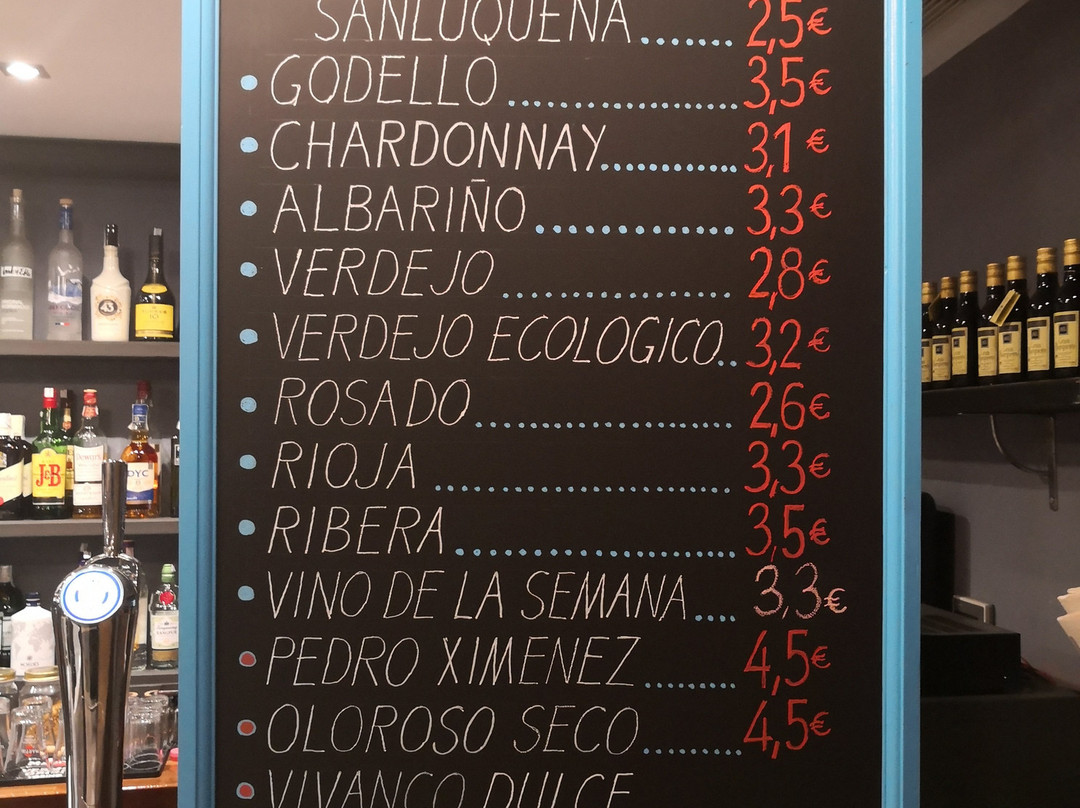 SANLUQUEÑA 2,5€
GODELLO 3,5€
CHARDONNAY 3,1€
ALBARIÑO 3,3€
VERDEJO 2,8€
VERDEJO ECOLOGICO 3,2€
ROSADO 2,6€
RIOJA 3,3€
RIBERA 3,5€
VINO DE LA SEMANA 3,3€
PEDRO XIMENEZ 4,5€
OLOROSO SECO 4,5€
VIVANCO DULCE
J&B
DYC
43